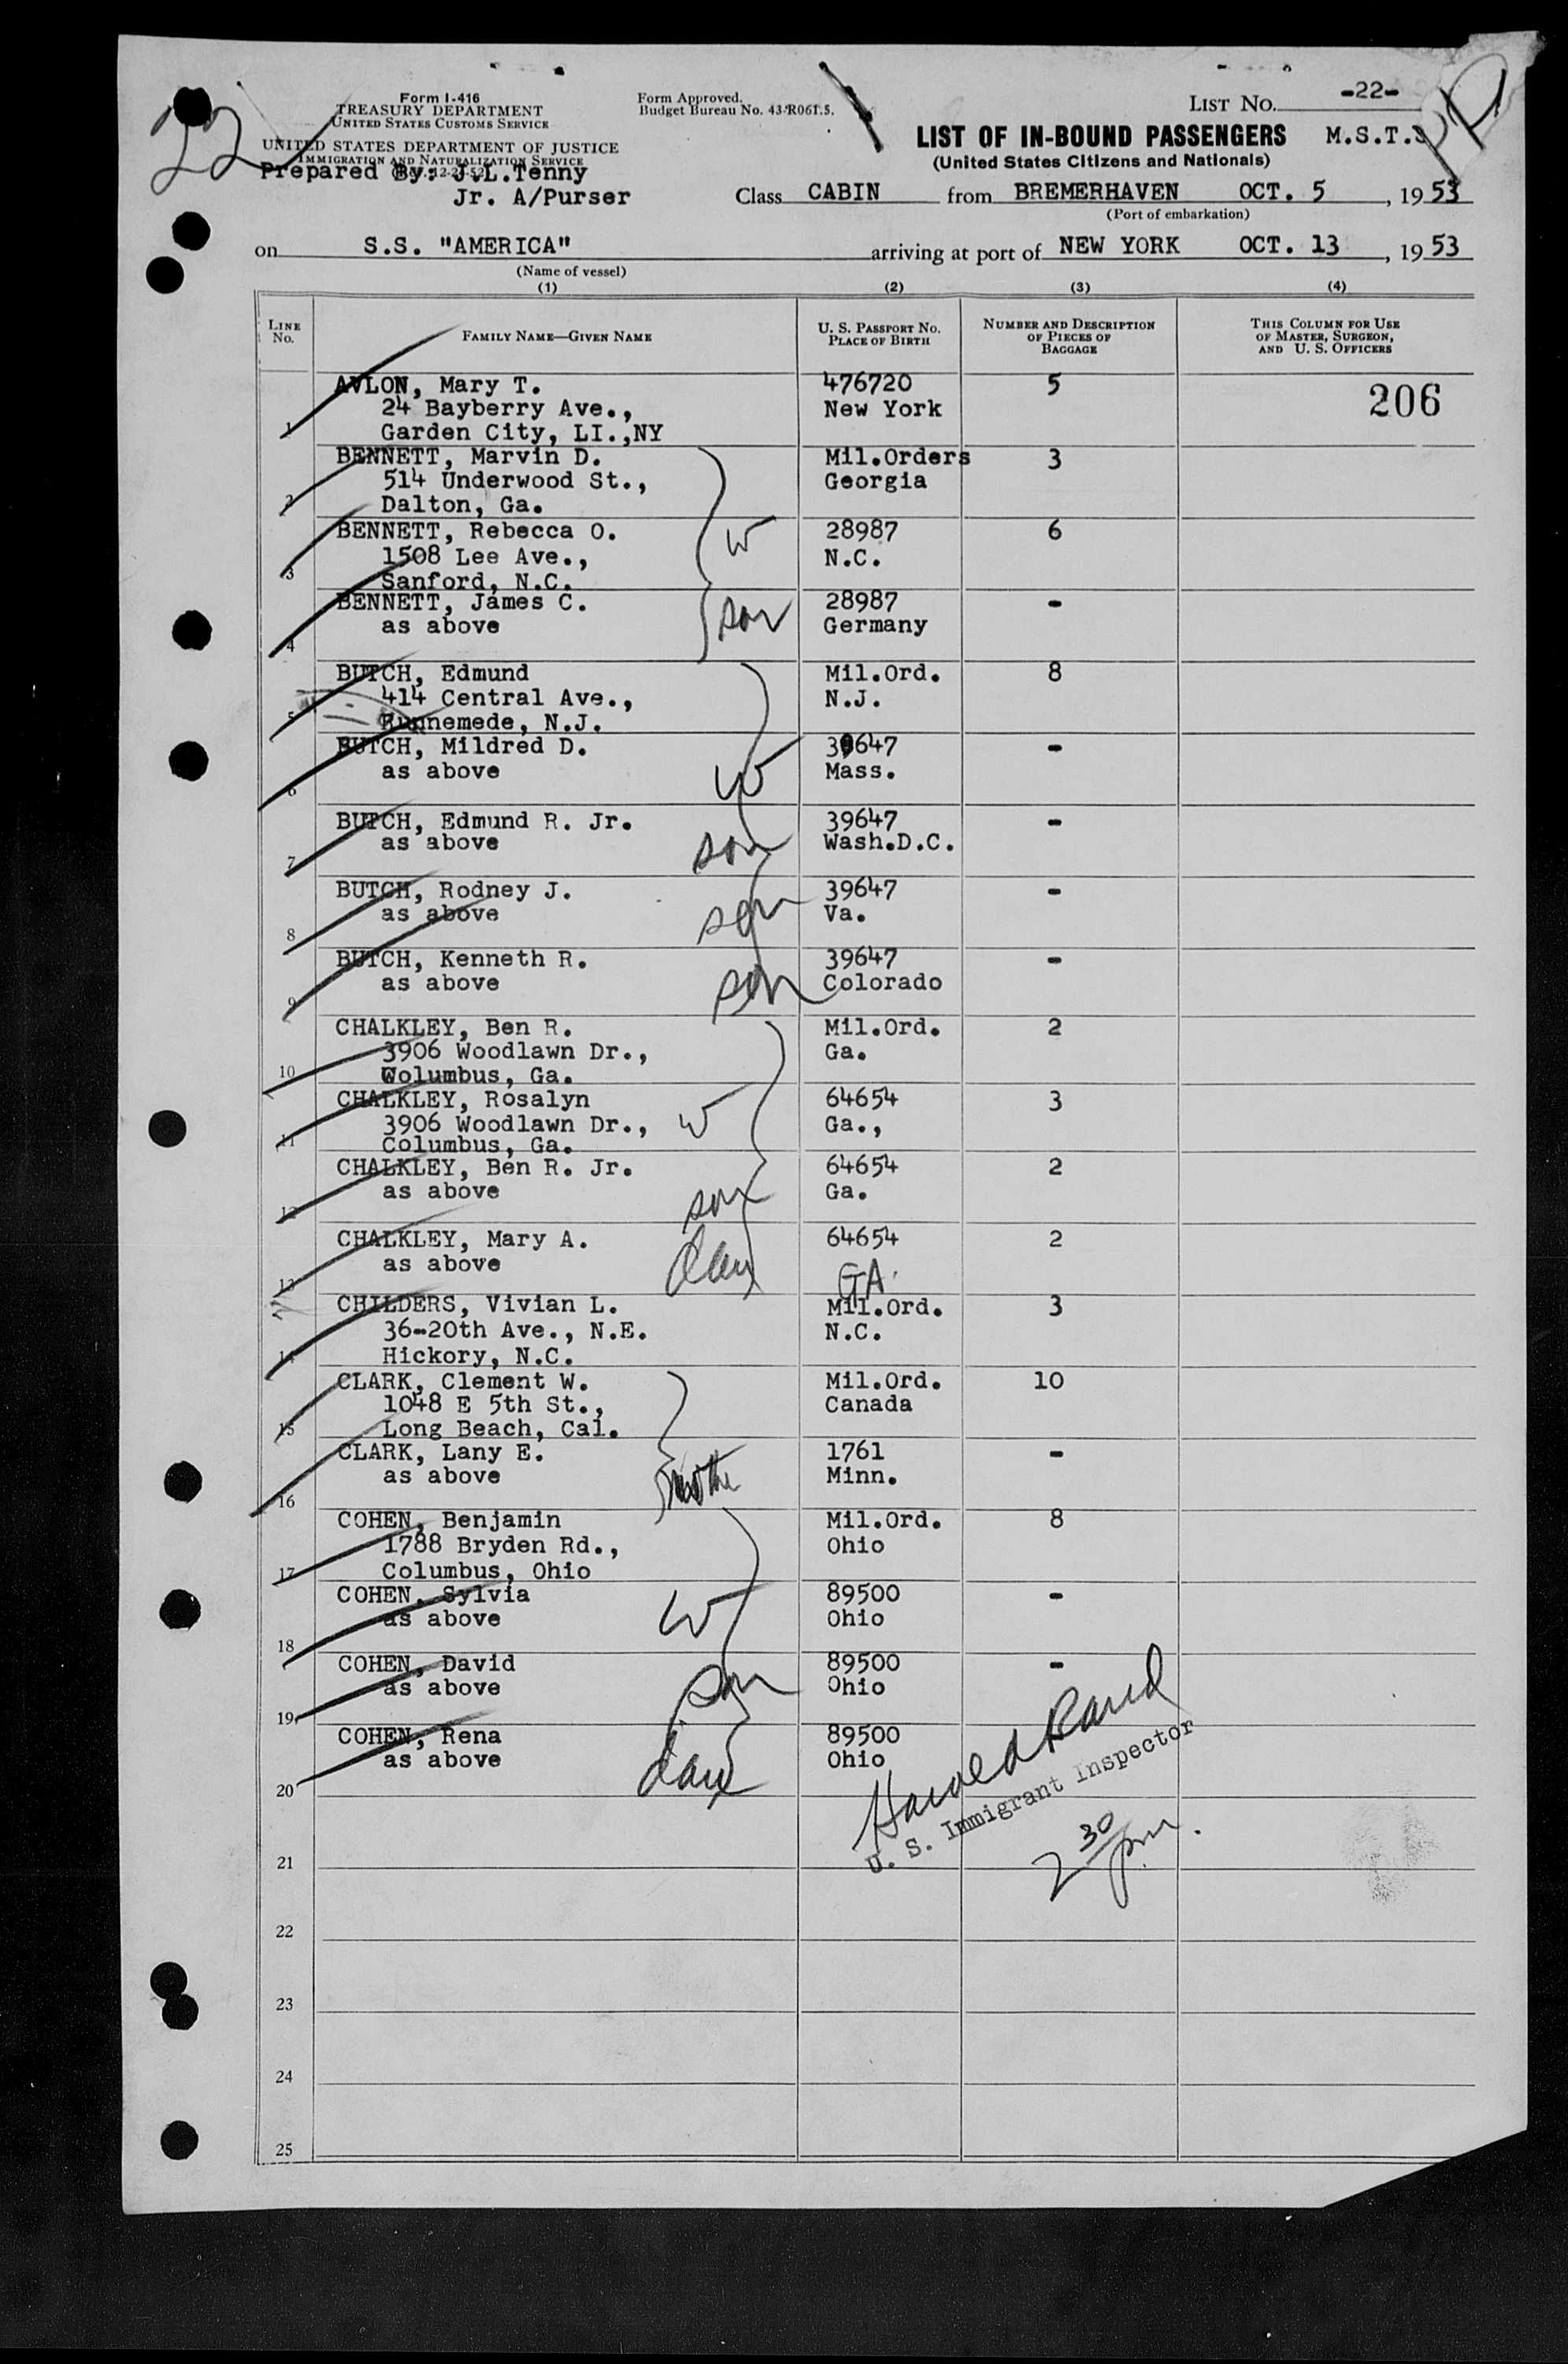 22
Form I-416
TREASURY DEPARTMENT
UNITED STATES CUSTOMS SERVICE
UNITED STATES DEPARTMENT OF JUSTICE
IMMIGRATION AND NATURALIZATION SERVICE
Prepared By: J.L.Tenny
Jr. A/Purser
Form Approved.
Budget Bureau No. 43-R061.5.
LIST NO. -22-
LIST OF IN-BOUND PASSENGERS M.S.T.S
(United States Citizens and Nationals)
Class CABIN from BREMERHAVEN OCT. 5, 1953
(Port of embarkation)
on S.S. "AMERICA" arriving at port of NEW YORK OCT. 13, 1953
(Name of vessel)
(1) (2) (3) (4)
LINE No. FAMILY NAME—GIVEN NAME U. S. PASSPORT NO. PLACE OF BIRTH NUMBER AND DESCRIPTION OF PIECES OF BAGGAGE THIS COLUMN FOR USE OF MASTER, SURGEON, AND U. S. OFFICERS
AVLON, Mary T. 476720 5 206
24 Bayberry Ave., New York
1 Garden City, LI.,NY
BENNETT, Marvin D. Mil.Orders 3
514 Underwood St., Georgia
2 Dalton, Ga.
BENNETT, Rebecca O. W 28987 6
1508 Lee Ave., N.C.
3 Sanford, N.C.
BENNETT, James C. son 28987 -
as above Germany
4
BUTCH, Edmund Mil.Ord. 8
414 Central Ave., N.J.
5 Runnemede, N.J.
BUTCH, Mildred D. 39647 -
as above W Mass.
6
BUTCH, Edmund R. Jr. 39647 -
as above son Wash.D.C.
7
BUTCH, Rodney J. 39647 -
as above son Va.
8
BUTCH, Kenneth R. 39647 -
as above son Colorado
9
CHALKLEY, Ben R. Mil.Ord. 2
3906 Woodlawn Dr., Ga.
10 Columbus, Ga.
CHALKLEY, Rosalyn 64654 3
3906 Woodlawn Dr., W Ga.,
11 Columbus, Ga.
CHALKLEY, Ben R. Jr. 64654 2
as above son Ga.
12
CHALKLEY, Mary A. 64654 2
as above dau GA.
13
CHILDERS, Vivian L. Mil.Ord. 3
36-20th Ave., N.E. N.C.
14 Hickory, N.C.
CLARK, Clement W. Mil.Ord. 10
1048 E 5th St., Canada
15 Long Beach, Cal.
CLARK, Lany E. 1761 -
as above Minn.
16
COHEN, Benjamin Mil.Ord. 8
1788 Bryden Rd., Ohio
17 Columbus, Ohio
COHEN, Sylvia 89500 -
as above W Ohio
18
COHEN, David 89500 -
as above son Ohio
19
COHEN, Rena 89500
as above dau Ohio
20
Harold
U. S. Immigrant Inspector
2 30 pm.
21
22
23
24
25